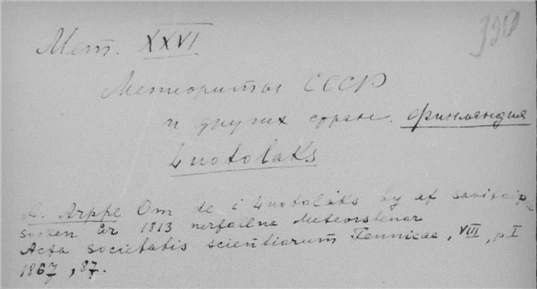 Мет. XXVI.
Метеориты СССР
и других стран. Финляндия
Luotolaks
A. Arppe Om de i Luotolaks by af savitaip.
socken år 1813 nerfallna meteorstenar
Acta societatis scientiarum Fennicae, VIII, p. I
1867, 87.